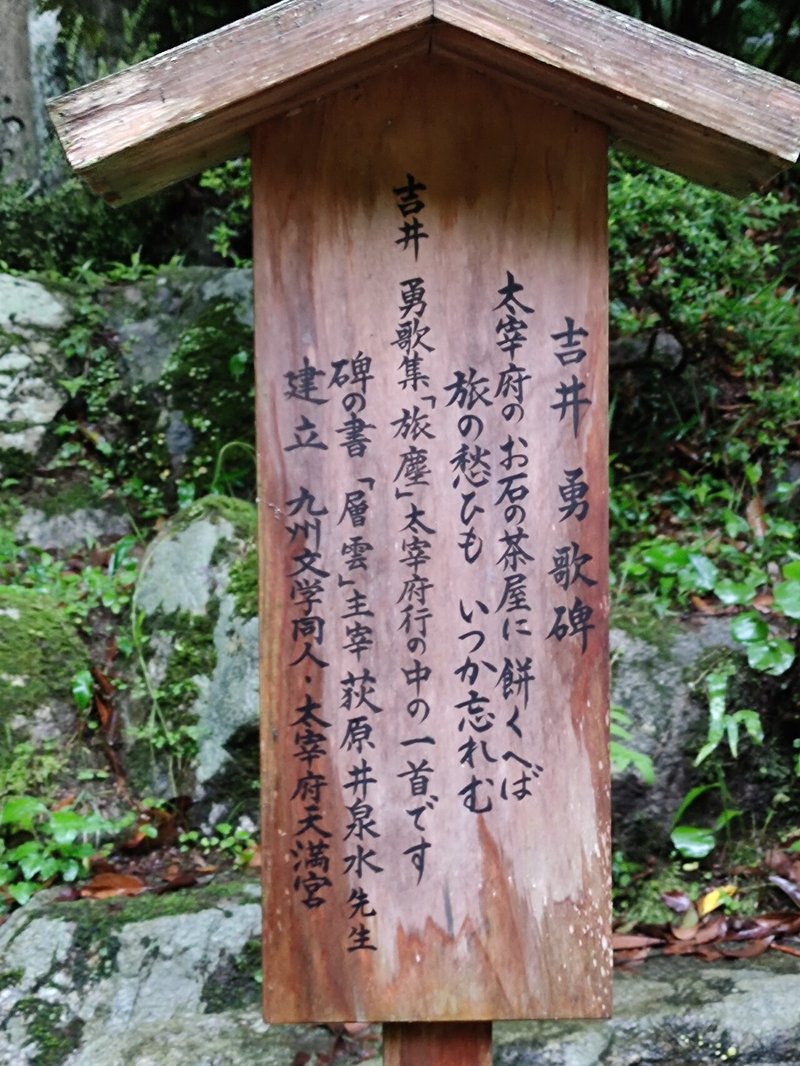 吉井 勇 歌碑
太宰府のお石の茶屋に 餅くへば
旅の愁ひも いつか忘れむ
吉井 勇歌集「旅塵」太宰府行の中の一首です
碑の書 「層雲」主宰 荻原井泉水先生
建立 九州文学同人・太宰府天満宮